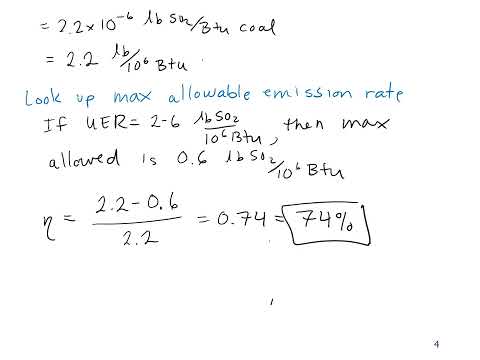 = 2.2 × 10⁻⁶ lb SO₂/Btu coal
= 2.2 lb/10⁶ Btu
Look up max allowable emission rate
If UER = 2-6 lb SO₂/10⁶ Btu, then max
allowed is 0.6 lb SO₂/10⁶ Btu
η = (2.2 - 0.6)/2.2 = 0.74 = 74%
4